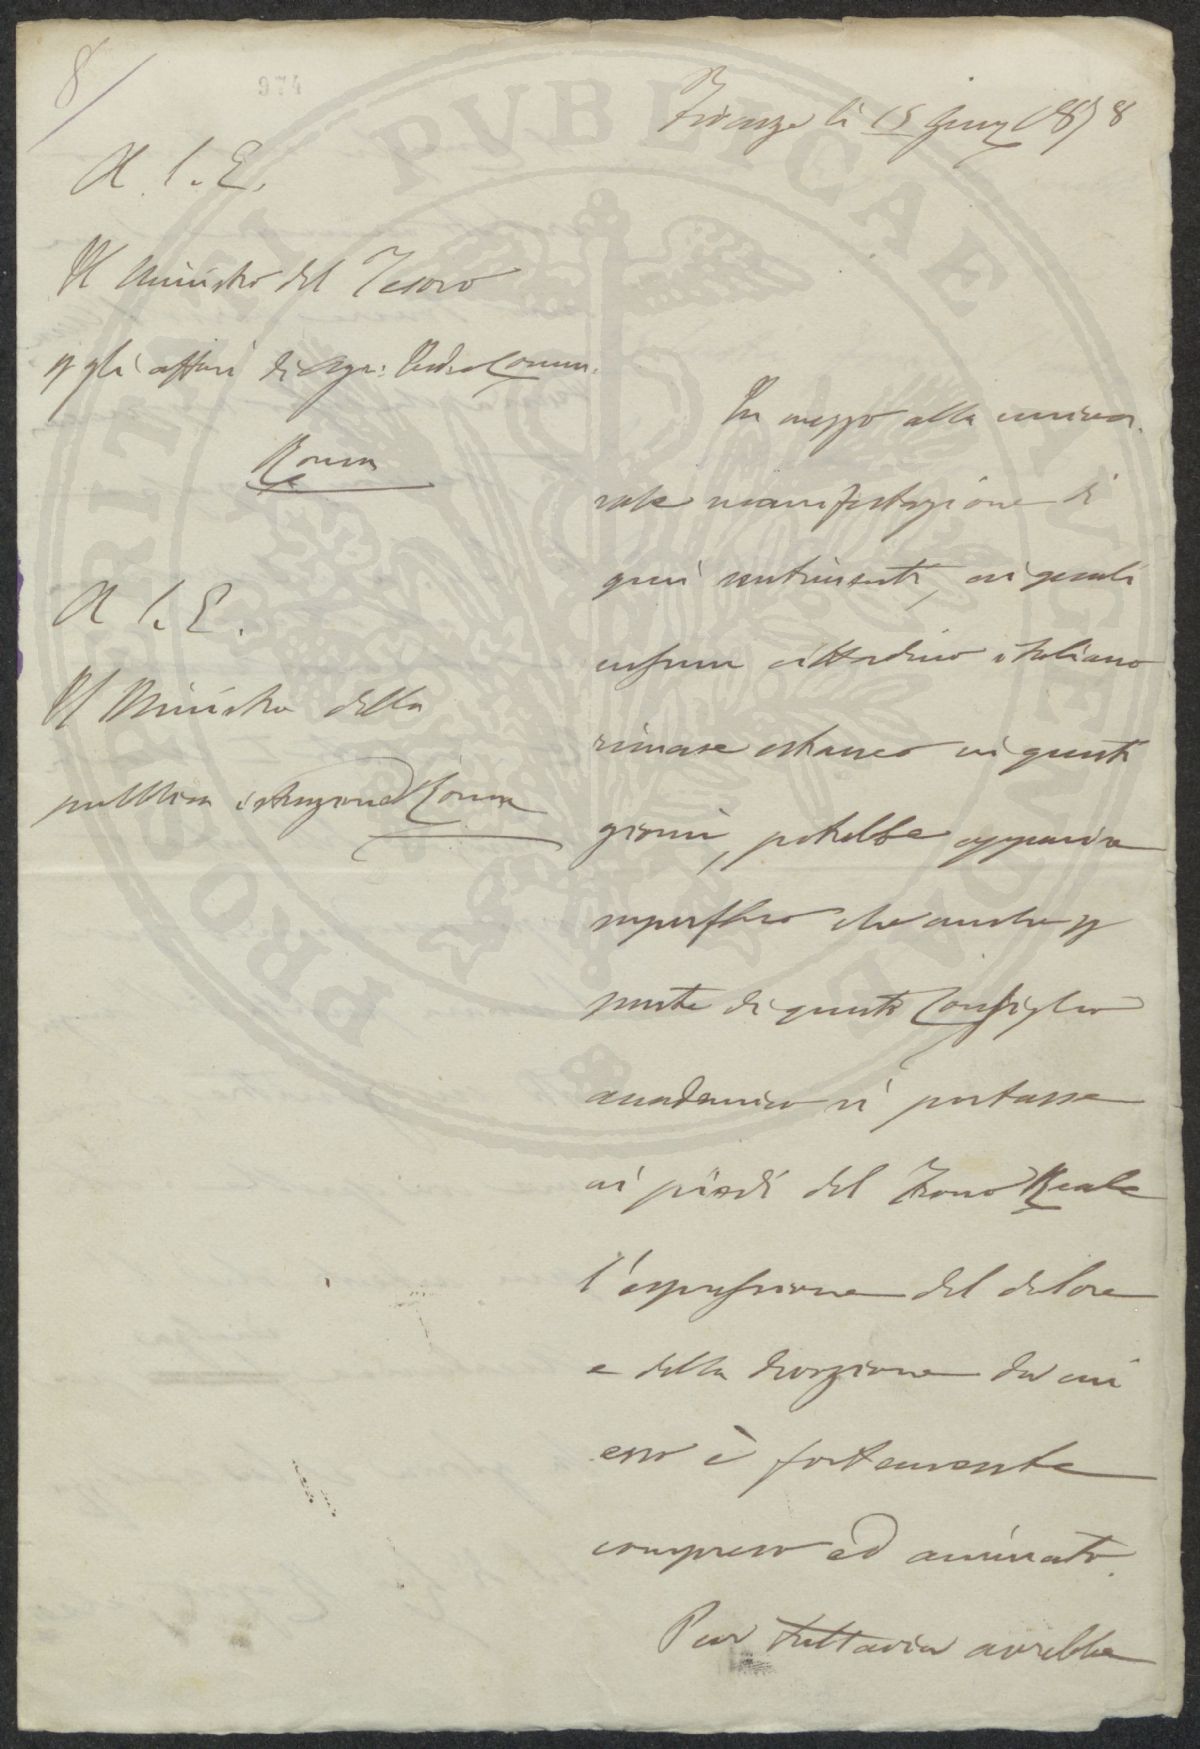 8/
974
Firenze li 15 Genn 1878
A. S. E.
Il Ministro del Tesoro
p gli affari di Agr: Ind. e Comm.
Roma
A S. E.
Il Ministro della
pubblica istruzione Roma
In mezzo alla univer-
sale manifestazione di
quei sentimenti, ai quali
nessun cittadino italiano
rimase estraneo in questi
giorni, potrebbe apparire
superfluo che anche p
parte di questo Consiglio
accademico si portasse
ai piedi del Trono Reale
l'espressione del dolore
e della devozione da cui
esso è fortemente
compreso ed animato.
Pur tuttavia avrebbe
PROSPERITATI PVBLICAE AVGENDAE